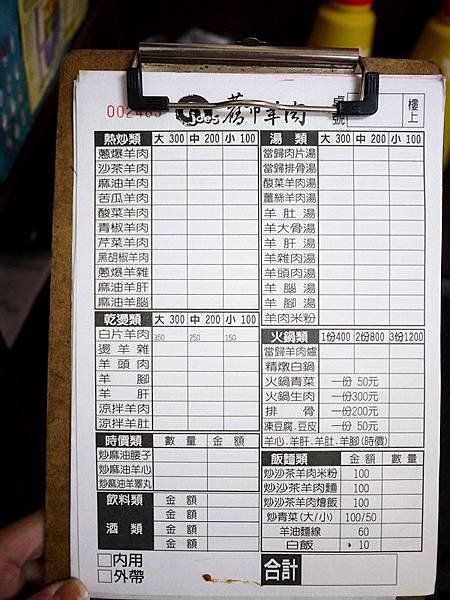 舊甲羊肉
桌號
樓上
熱炒類 大 300 中 200 小 100
蔥爆羊肉
沙茶羊肉
麻油羊肉
苦瓜羊肉
酸菜羊肉
青椒羊肉
芹菜羊肉
黑胡椒羊肉
蔥爆羊雜
麻油羊肝
麻油羊腦
乾燙類 大 300 中 200 小 100
白片羊肉 350 250 150
燙羊雜
羊頭肉
羊腳
羊肝
涼拌羊肉
涼拌羊肚
時價類 數量 金額
炒麻油腰子
炒麻油羊心
炒麻油羊睪丸
飲料類 金額
金額
酒類 金額
金額
內用
外帶
湯類 大 300 中 200 小 100
當歸肉片湯
當歸排骨湯
酸菜羊肉湯
薑絲羊肉湯
羊肚湯
羊大骨湯
羊肝湯
羊雜肉湯
羊頭肉湯
羊腦湯
羊腳湯
羊肉米粉
火鍋類 1份400 2份800 3份1200
當歸羊肉爐
精燉白鍋
火鍋青菜 一份 50元
火鍋生肉 一份300元
排骨 一份200元
凍豆腐.豆皮 一份 50元
羊心.羊肝.羊肚.羊腳(時價)
飯麵類 金額 數量
炒沙茶羊肉米粉 100
炒沙茶羊肉麵 100
炒沙茶羊肉燴飯 100
炒青菜(大/小) 100/50
羊油麵線 60
白飯 10
合計